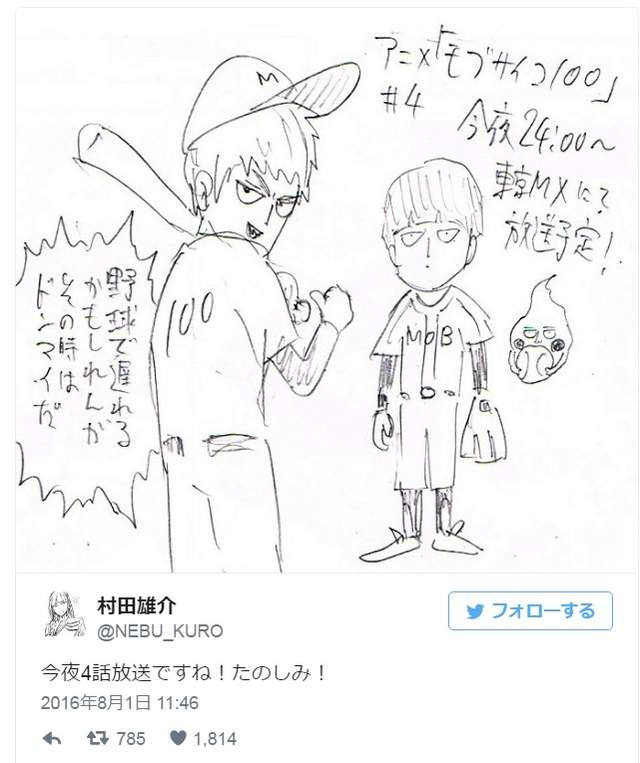 アニメ「モブサイコ100」
#4
今夜24:00〜
東京MXにて
放送予定!
M
100
MOB
野球で遅れる
かもしれんが
その時は
ドンマイだ
村田雄介
@NEBU_KURO
フォローする
今夜4話放送ですね!たのしみ!
2016年8月1日 11:46
785 1,814